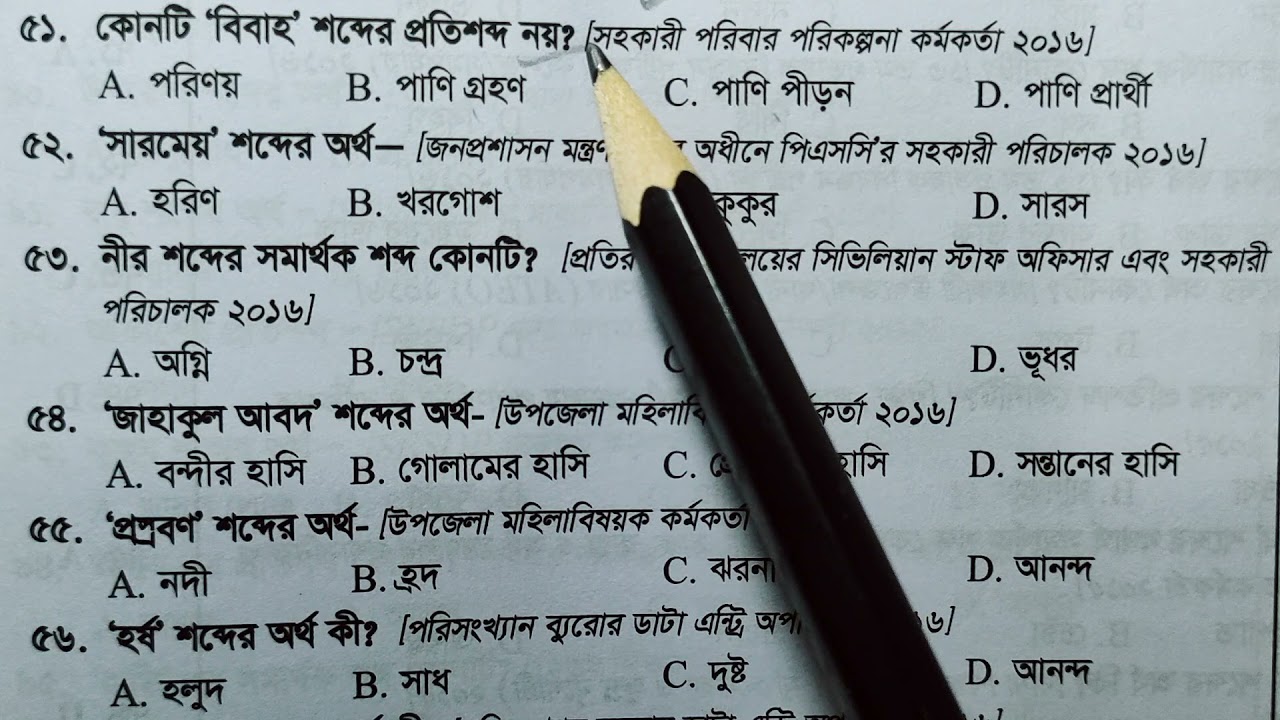 ৫১. কোনটি ‘বিবাহ’ শব্দের প্রতিশব্দ নয়? [সহকারী পরিবার পরিকল্পনা কর্মকর্তা ২০১৬]
A. পরিণয় B. পাণি গ্রহণ C. পাণি পীড়ন D. পাণি প্রার্থী
৫২. ‘সারমেয়’ শব্দের অর্থ— [জনপ্রশাসন অধীনে পিএসসি’র সহকারী পরিচালক ২০১৬]
A. হরিণ B. খরগোশ কুকুর D. সারস
৫৩. নীর শব্দের সমার্থক শব্দ কোনটি? সিভিলিয়ান স্টাফ অফিসার এবং সহকারী
পরিচালক ২০১৬]
A. অগ্নি B. চন্দ্র D. ভূধর
৫৪. ‘জাহাকুল আবদ’ শব্দের অর্থ- [উপজেলা ২০১৬]
A. বন্দীর হাসি B. গোলামের হাসি C. হাসি D. সন্তানের হাসি
৫৫. ‘প্রস্রবণ’ শব্দের অর্থ- [উপজেলা মহিলাবিষয়ক কর্মকর্তা
A. নদী B. হ্রদ C. ঝরনা D. আনন্দ
৫৬. ‘হর্ষ’ শব্দের অর্থ কী? [পরিসংখ্যান ব্যুরোর ডাটা এন্ট্রি
A. হলুদ B. সাধ C. দুষ্ট D. আনন্দ